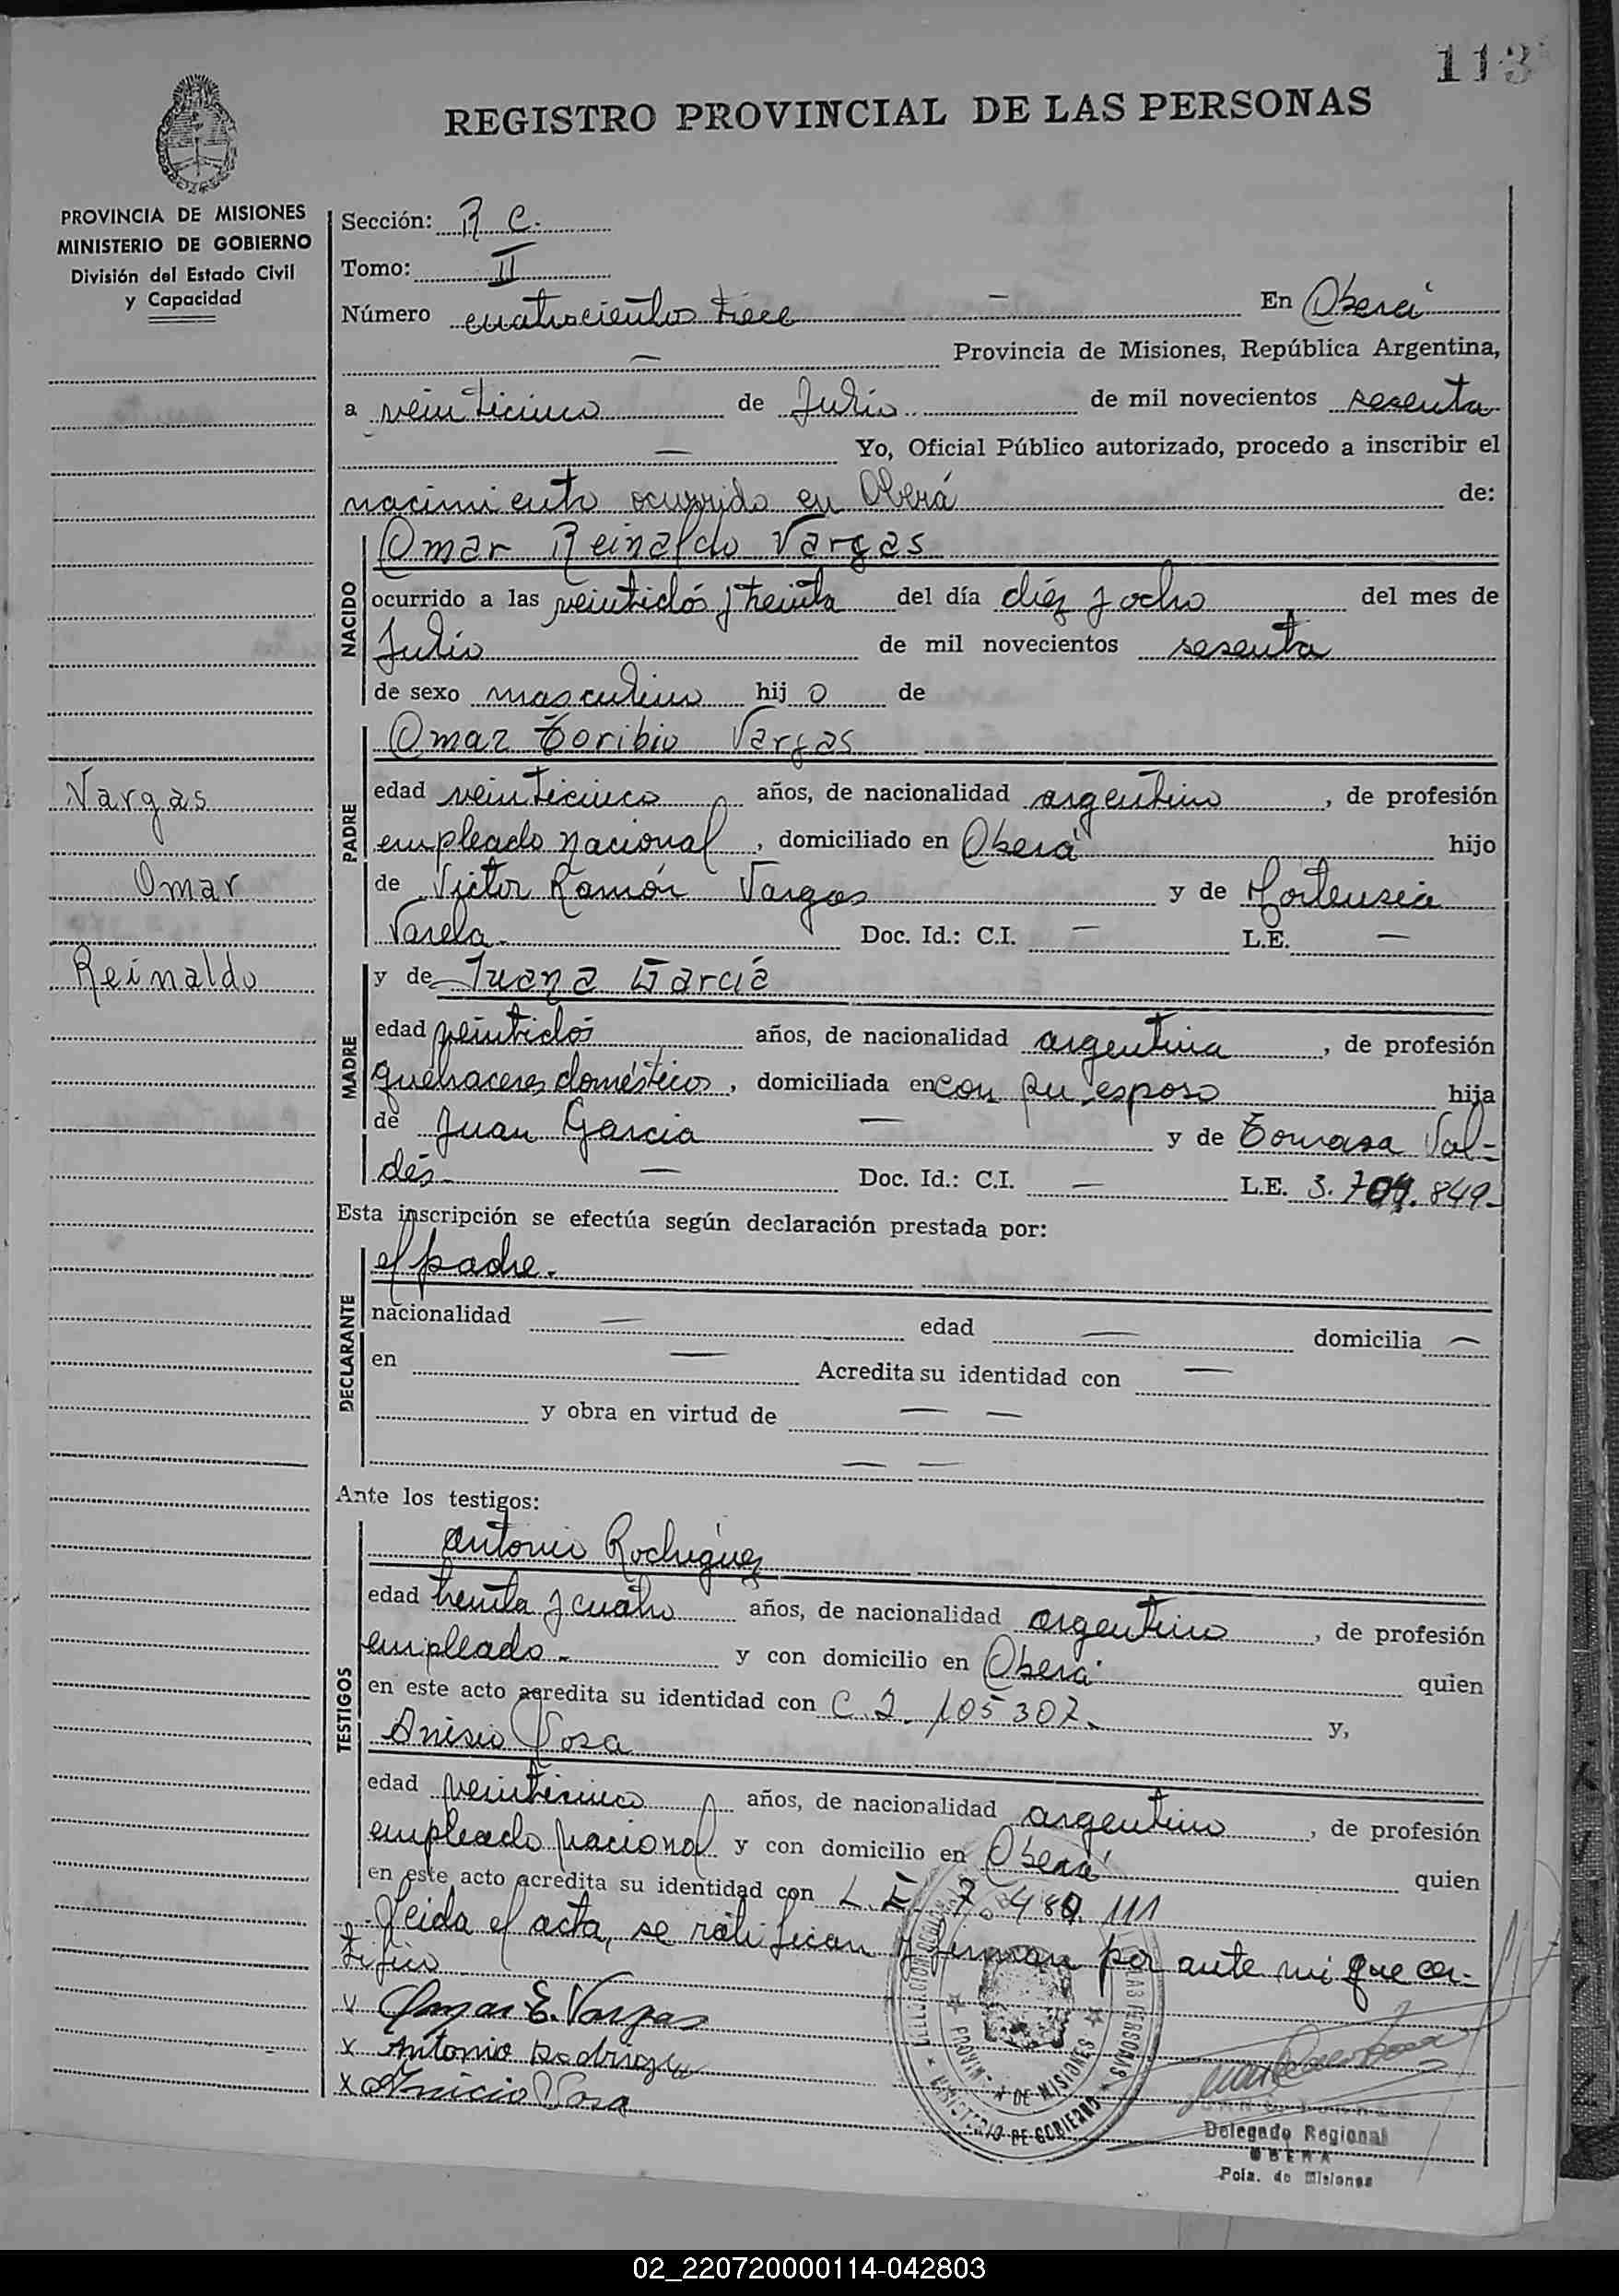 113
REGISTRO PROVINCIAL DE LAS PERSONAS
PROVINCIA DE MISIONES
MINISTERIO DE GOBIERNO
División del Estado Civil
y Capacidad
Vargas
Omar
Reinaldo
Sección: R C.
Tomo: II
Número cuatrocientos trece — En Oberá
— Provincia de Misiones, República Argentina,
a veinticinco de Julio de mil novecientos sesenta
— Yo, Oficial Público autorizado, procedo a inscribir el
nacimiento ocurrido en Oberá de:
NACIDO
Omar Reinaldo Vargas
ocurrido a las veintidós y treinta del día diez y ocho del mes de
Julio de mil novecientos sesenta
de sexo masculino hijo de
PADRE
Omar Toribio Vargas
edad veinticinco años, de nacionalidad argentino, de profesión
empleado nacional, domiciliado en Oberá hijo
de Victor Ramón Vargas y de Hortensia
Varela - Doc. Id.: C.I. — L.E. —
MADRE
y de Juana Garcia
edad veintidós años, de nacionalidad argentina, de profesión
quehaceres domésticos, domiciliada en con su esposo hija
de Juan Garcia — y de Tomasa Val=
dés - — Doc. Id.: C.I. — L.E. 3.704.849-
Esta inscripción se efectúa según declaración prestada por:
DECLARANTE
el padre.
nacionalidad — edad — domicilia —
en — Acredita su identidad con —
y obra en virtud de — —
— —
Ante los testigos:
TESTIGOS
Antonio Rodriguez
edad treinta y cuatro años, de nacionalidad argentino, de profesión
empleado - y con domicilio en Oberá quien
en este acto acredita su identidad con C.I. 105307. y,
Anisio Sosa
edad veinticinco años, de nacionalidad argentino, de profesión
empleado nacional y con domicilio en Oberá quien
en este acto acredita su identidad con L.E. 7.480.111
Leida el acta, se ratifican y firman por ante mi que cer=
tifico
x Omar E. Vargas
x Antonio Rodriguez
x Anicio Sosa
PROVINCIA DE MISIONES
MINISTERIO DE GOBIERNO
LAS PERSONAS
Delegado Regional
OBERA
Pcia. de Misiones
02_220720000114-042803